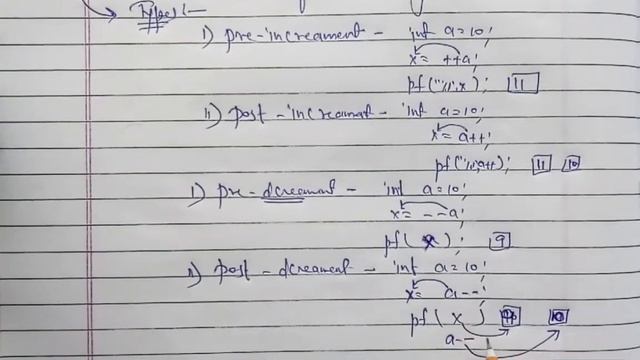 Types:-
i) pre-increament - int a=10;
x= ++a;
pf("%",x); 11
ii) post-increament - int a=10;
x= a++;
pf("%",a++); 11 10
i) pre-decreament - int a=10;
x= --a;
pf( x ); 9
ii) post-decreament - int a=10;
x= a--;
pf( x ) 10
a--